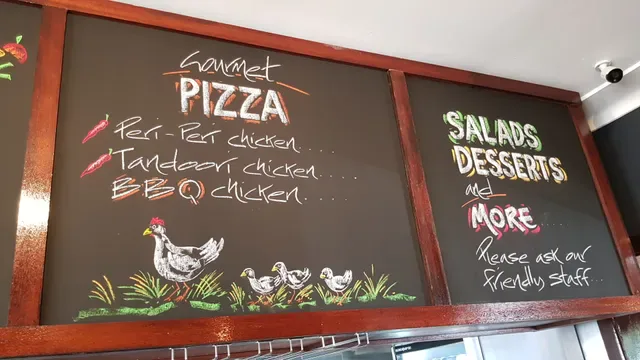 Gourmet
PIZZA
Peri-Peri chicken.....
Tandoori chicken.....
BBQ chicken.....
SALADS
DESSERTS
and
MORE....
Please ask our
friendly staff...